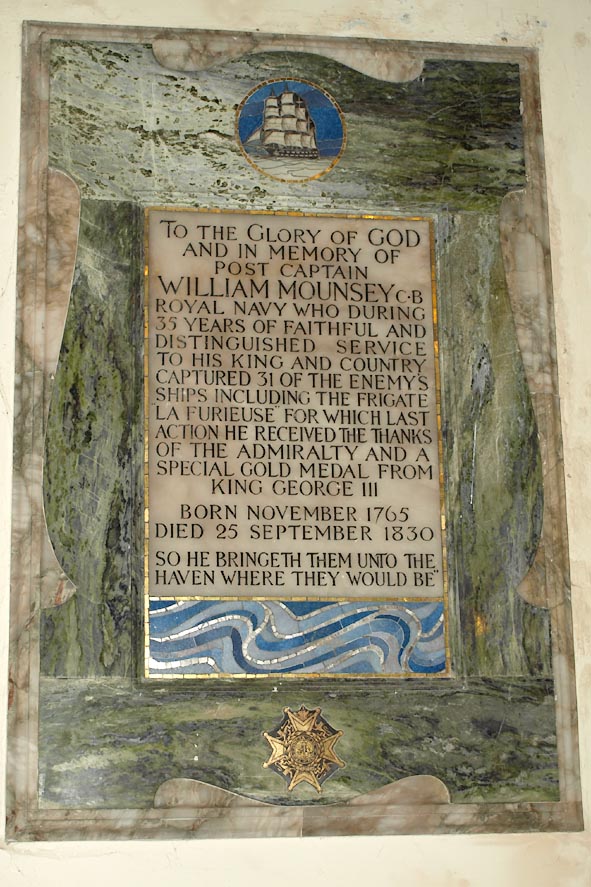 TO THE GLORY OF GOD
AND IN MEMORY OF
POST CAPTAIN
WILLIAM MOUNSEY C·B
ROYAL NAVY WHO DURING
35 YEARS OF FAITHFUL AND
DISTINGUISHED SERVICE
TO HIS KING AND COUNTRY
CAPTURED 31 OF THE ENEMY'S
SHIPS INCLUDING THE FRIGATE
LA FURIEUSE" FOR WHICH LAST
ACTION HE RECEIVED THE THANKS
OF THE ADMIRALTY AND A
SPECIAL GOLD MEDAL FROM
KING GEORGE III
BORN NOVEMBER 1765
DIED 25 SEPTEMBER 1830
SO HE BRINGETH THEM UNTO THE
HAVEN WHERE THEY WOULD BE"